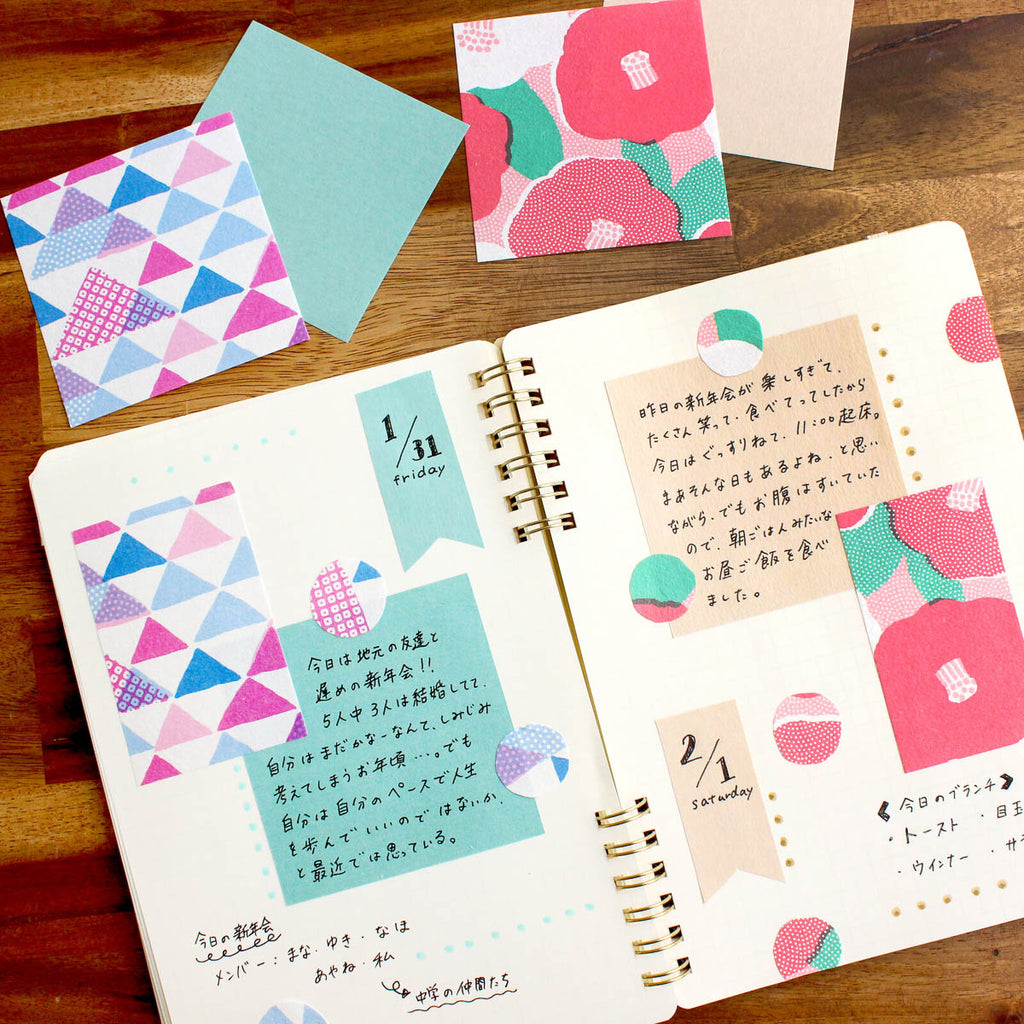 1/31
friday
今日は地元の友達と
遅めの新年会!!
5人中3人は結婚してて、
自分はまだかなーなんて、しみじみ
考えてしまうお年頃…。でも
自分は自分のペースで人生
を歩んでいいのではないか、
と最近では思っている。
今日の新年会
メンバー:まな・ゆき・なほ
あやね・私
中学の仲間たち
昨日の新年会が楽しすぎて、
たくさん笑って・食べてってしたから
今日はぐっすりねて、11:00起床。
まあそんな日もあるよね・と思い
ながら・でもお腹はすいていた
ので、朝ごはんみたいな
お昼ご飯を食べ
ました。
2/1
saturday
《今日のブランチ》
・トースト ・目玉
・ウインナー ・サラ